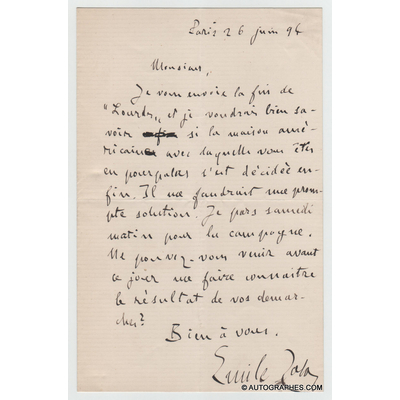 Paris 26 juin 94
Monsieur,
Je vous envoie la fin de
"Lourdes", et je voudrais bien sa-
voir si la maison amé-
ricaine avec laquelle vous êtes
en pourparlers s'est décidée en-
fin. Il me faudrait une prom-
pte solution. Je pars samedi
matin pour la campagne.
Ne pouvez-vous venir avant
ce jour me faire connaître
le résultat de vos démar-
ches?
Bien à vous.
Emile Zola
© AUTOGRAPHES.COM